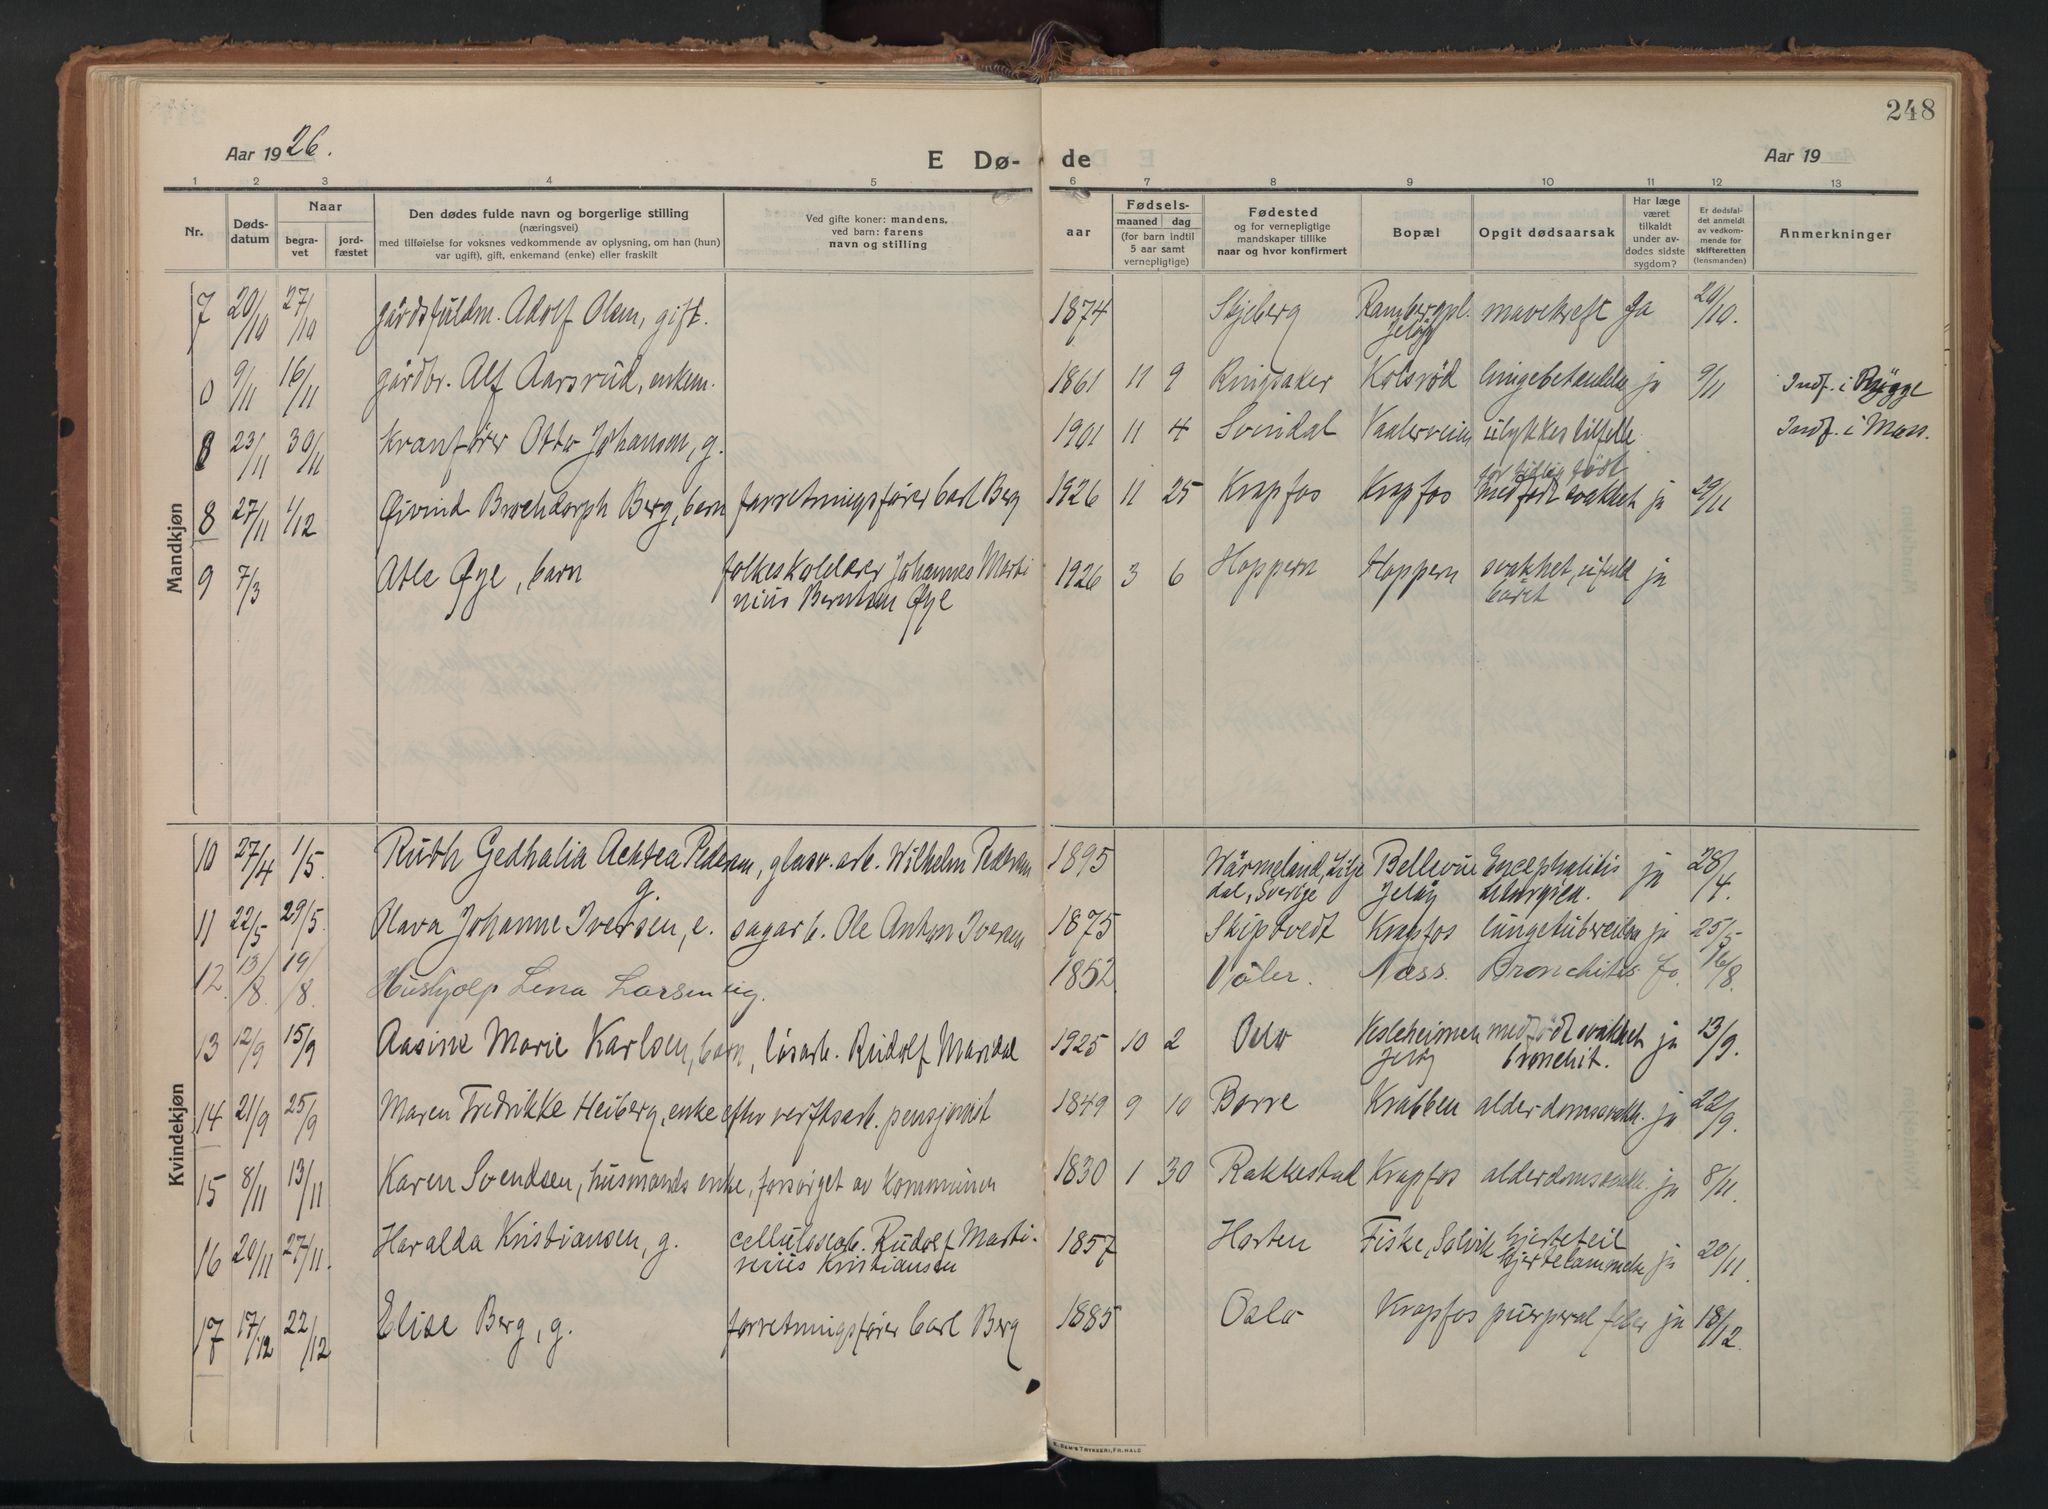 248
Aar 1926.
E Dø- de
Aar 19
1 2 3 4 5 6 7 8 9 10 11 12 13
Nr. Dødsdatum Naar begravet jordfæstet
Den dødes fulde navn og borgerlige stilling
(næringsvei)
med tilføielse for voksnes vedkommende av oplysning, om han (hun)
var ugift), gift, enkemand (enke) eller fraskilt
Ved gifte koner: mandens,
ved barn: farens
navn og stilling
Fødsels-
aar maaned dag
(for barn indtil
5 aar samt
vernepligtige)
Fødested
og for vernepligtige
mandskaper tillike
naar og hvor konfirmert
Bopæl
Opgit dødsaarsak
Har læge
været
tilkaldt
under av-
dødes sidste
sygdom?
Er dødsfal-
det anmeldt
av vedkom-
mende for
skifteretten
(lensmanden)
Anmerkninger
Mandkjøn
7 20/10 27/10 gårdsfuldm. Adolf Olsen, gift. 1874 Skjeberg Rambergpl. Jeløy mavekreft Ja 20/10.
0 9/11 16/11 gårdbr. Alf Aarsrud, enkem. 1861 11 9 Ringsaker Kolsrød lungebetendelse ja 9/11 Indf. i Rygge
8 23/11 30/11 Kranfører Otto Johansen, g. 1901 11 4 Svindal Vaalerveien ulykkestilfelle Indf. i Moss.
8 27/11 1/12 Øivind Brochdorph Berg, barn forretningsfører Carl Berg 1926 11 25 Krapfos Krapfos for tidlig født medfødt svakhet ja 29/11
9 7/3 Atle Øye, barn folkeskolelærer Johannes Marti
nius Berntsen Øye 1926 3 6 Hoppern Hoppern svakhet, ufuld
båret ja
Kvindekjøn
10 27/4 1/5. Ruth Gedhalia Aektea Pedersen, g. glasv. arb. Wilhelm Pedersen 1895 Wärmeland, Lilje
dal, Sverige Bellevue
Jeløy Encephalitis
letargica. ja 28/4.
11 22/5 29/5. Olava Johanne Iversen, e. sagarb. Ole Anton Iversen 1875 Skiptvedt Krapfos lungetuberculose ja 25/5
12. 13/8. 19/8. Hushjelp Lena Larsen ug. 1852 Våler. Næss. Bronchitis Ja. 16/8.
13 12/9 15/9 Aasine Marie Karlsen, barn, løsarb. Rudolf Mandal 1925 10 2 Oslo Vesleheimen
Jeløy medfødt svakhet
bronchit. ja 13/9.
14 21/9 25/9 Maren Fredrikke Heiberg, enke efter verftsarb. pensjonist 1849 9 10 Borre Krabben alderdomssvakh. ja 22/9.
15 8/11 13/11 Karen Svendsen, husmands enke, forsørget av kommunen 1830 1 30 Rakkestad Krapfos alderdomssvakh. ja 8/11.
16 20/11 27/11. Haralda Kristiansen, g. cellulosearb. Rudolf Marti-
nius Kristiansen 1857 Horten Fiske, Solvik hjertefeil
hjertelammelse ja 20/11.
17 17/12 22/12 Elise Berg, g. forretningsfører Carl Berg 1885 Oslo Krapfos puerperal feber ja 18/12.
E. SEM'S TRYKKERI, FR.HALD